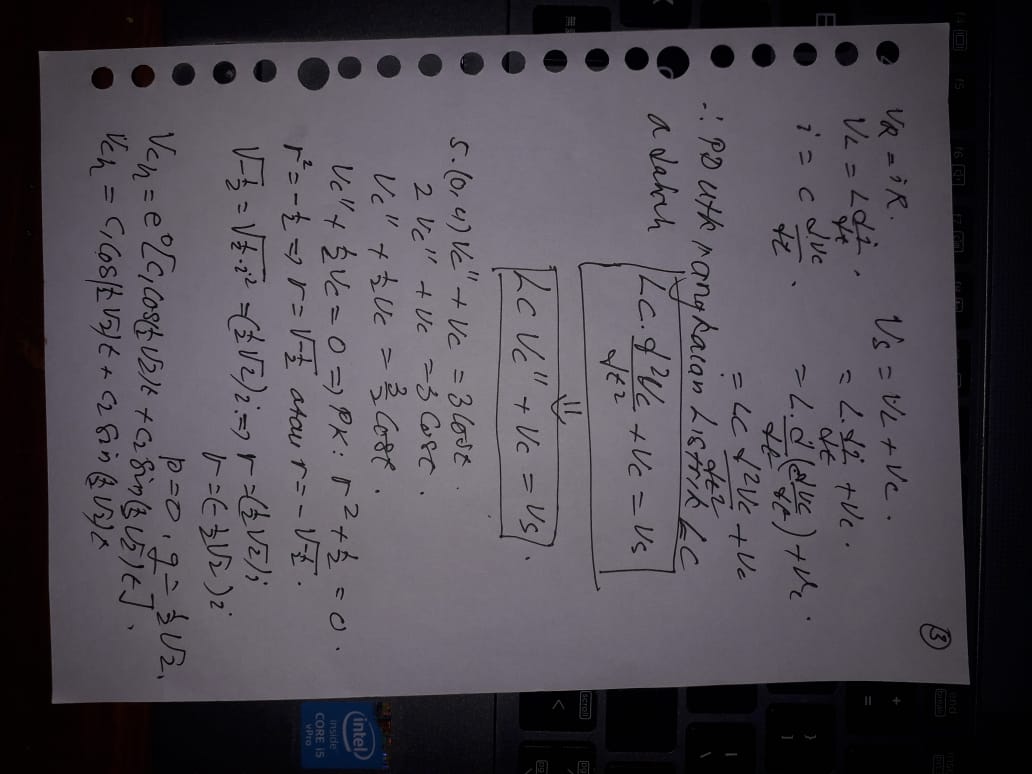 ③
V_R = iR.
V_L = L di/dt.
i = C dVc/dt.
V_S = V_L + Vc.
= L. di/dt + Vc.
= L. d/dt (c dVc/dt) + Vc.
= LC d²Vc/dt² + Vc
∴ PD utk rangkaian Listrik LC
adalah
LC. d²Vc/dt² + Vc = Vs
⇓
LC Vc'' + Vc = Vs.
5.(0,4) Vc'' + Vc = 3 Cos t.
2 Vc'' + Vc = 3 Cos t.
Vc'' + 1/2 Vc = 3/2 Cos t.
Vc'' + 1/2 Vc = 0 => PK: r² + 1/2 = 0.
r² = -1/2 => r = √-1/2 atau r = -√-1/2.
√-1/2 = √1/2·i² = (1/2 √2)i => r = (1/2 √2)i
r = (-1/2 √2)i
p = 0, q = 1/2 √2.
Vch = e⁰[C₁ cos(1/2 √2)t + C₂ sin(1/2 √2)t].
Vch = C₁ cos(1/2 √2)t + C₂ sin(1/2 √2)t
f4
f5
f6
f7
end
break
scroll
intel
inside
CORE i5
vPro